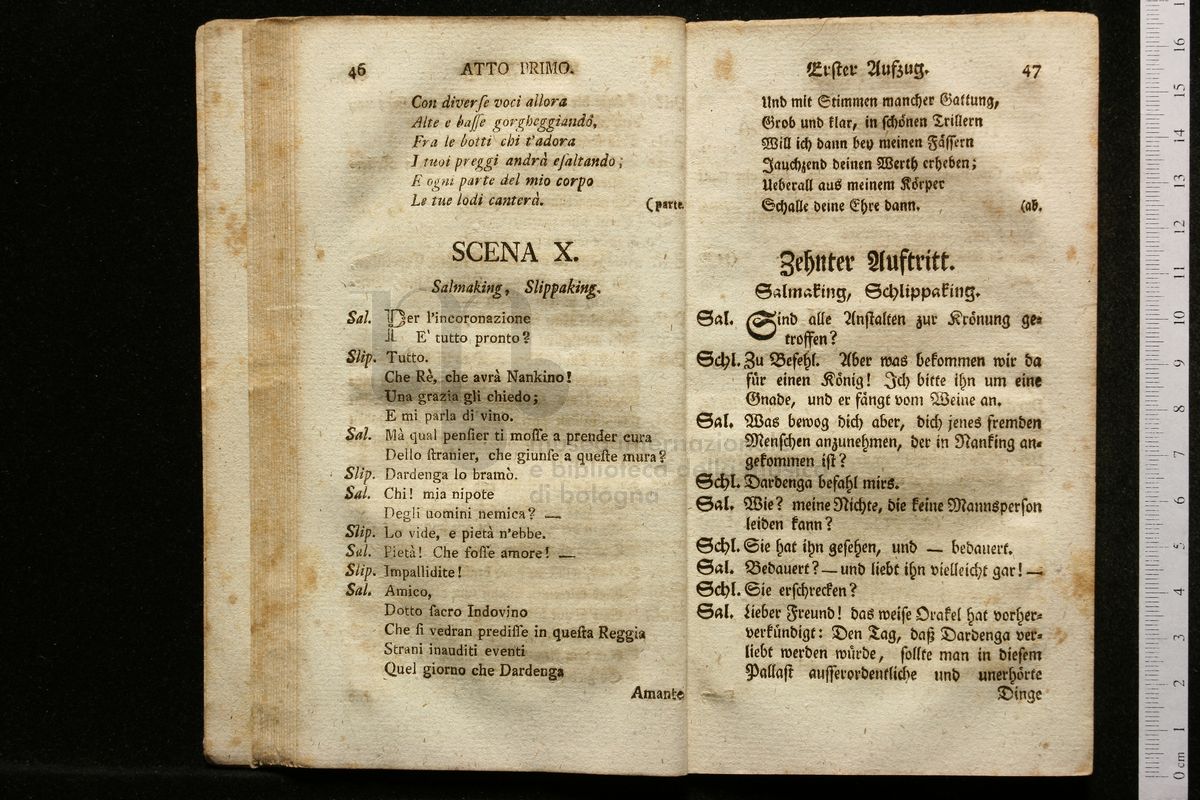 46 ATTO PRIMO.
Con diverſe voci allora
Alte e baſſe gorgheggiando,
Fra le botti chi t'adora
I tuoi preggi andrà eſaltando;
E ogni parte del mio corpo
Le tue lodi canterà.
(parte.
SCENA X.
Salmaking, Slippaking.
Sal. Per l'incoronazione
E' tutto pronto?
Slip. Tutto.
Che Rè, che avrà Nankino!
Una grazia gli chiedo;
E mi parla di vino.
Sal. Mà qual penſier ti moſſe a prender cura
Dello ſtranier, che giunſe a queſte mura?
Slip. Dardenga lo bramò.
Sal. Chi! mia nipote
Degli uomini nemica? —
Slip. Lo vide, e pietà n'ebbe.
Sal. Pietà! Che foſſe amore! —
Slip. Impallidite!
Sal. Amico,
Dotto ſacro Indovino
Che ſi vedran prediſſe in queſta Reggia
Strani inauditi eventi
Quel giorno che Dardenga
Amante
Erſter Aufzug. 47
Und mit Stimmen mancher Gattung,
Grob und klar, in ſchönen Trillern
Will ich dann bey meinen Fäſſern
Jauchzend deinen Werth erheben;
Ueberall aus meinem Körper
Schalle deine Ehre dann.
(ab.
Zehnter Auftritt.
Salmaking, Schlippaking.
Sal. Sind alle Anſtalten zur Krönung ge-
troffen?
Schl. Zu Befehl. Aber was bekommen wir da
für einen König! Ich bitte ihn um eine
Gnade, und er fängt vom Weine an.
Sal. Was bewog dich aber, dich jenes fremden
Menſchen anzunehmen, der in Nanking an-
gekommen iſt?
Schl. Dardenga befahl mirs.
Sal. Wie? meine Nichte, die keine Mannsperſon
leiden kann?
Schl. Sie hat ihn geſehen, und — bedauert.
Sal. Bedauert? — und liebt ihn vielleicht gar! —
Schl. Sie erſchrecken?
Sal. Lieber Freund! das weiſe Orakel hat vorher-
verkündigt: Den Tag, daß Dardenga ver-
liebt werden würde, ſollte man in dieſem
Pallaſt auſſerordentliche und unerhörte
Dinge
e biblioteca della musica
di bologna
0 cm 1 2 3 4 5 6 7 8 9 10 11 12 13 14 15 16